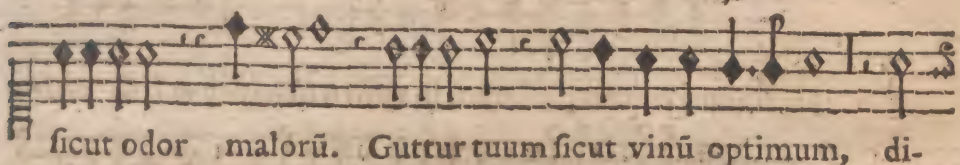 ſicut odor malorū. Guttur tuum ſicut vinū optimum, di-